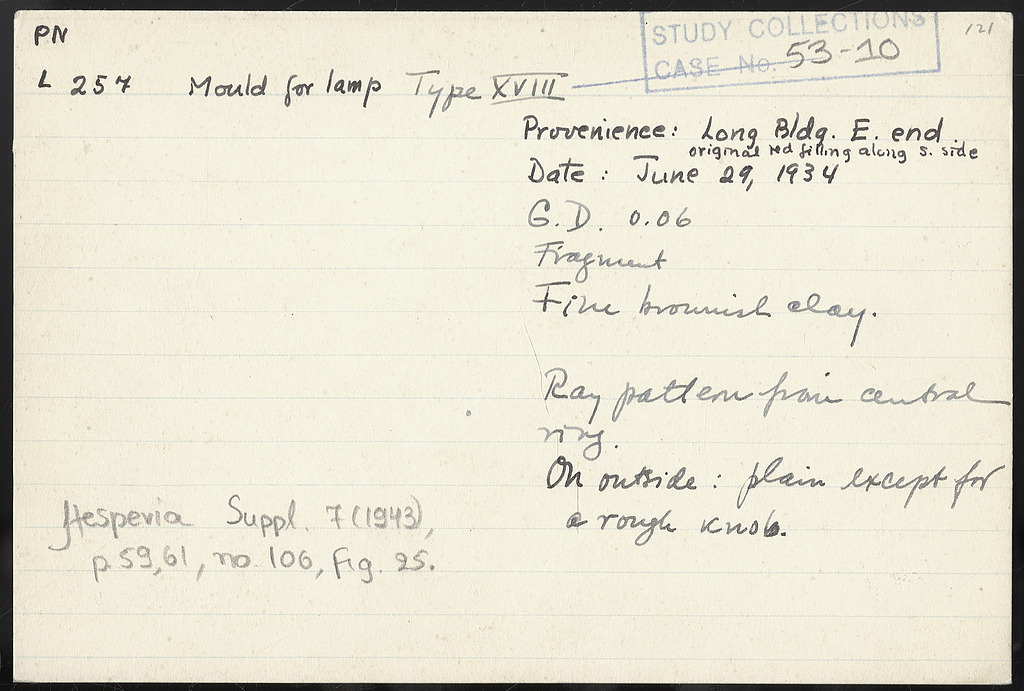 PN
STUDY COLLECTIONS
CASE No. 53-10
121
L 257 Mould for lamp Type XVIII
Provenience: Long Bldg. E. end
original red filling along s. side
Date: June 29, 1934
G.D. 0.06
Fragment
Fine brownish clay.
Ray pattern from central
ring.
On outside: plain except for
a rough knob.
Hesperia Suppl. 7 (1943),
p. 59, 61, no. 106, fig. 25.